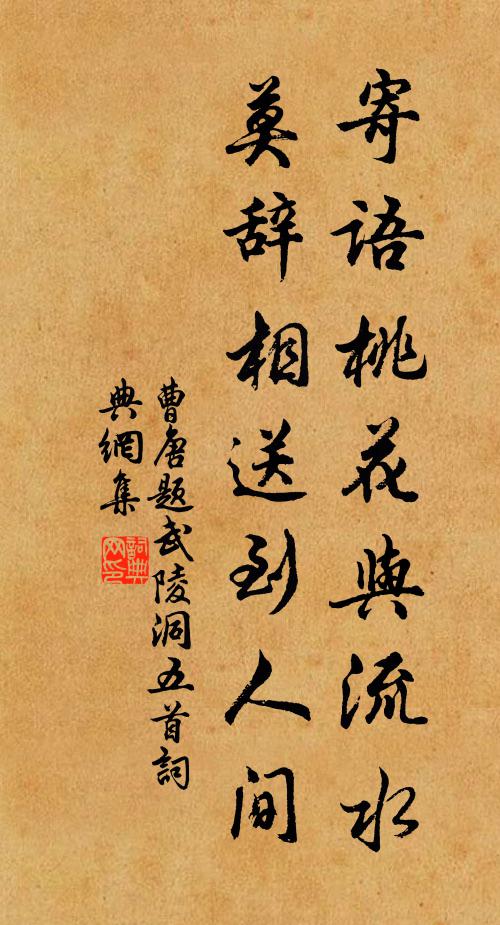 寄语桃花與流水
莫辞相送到人间
曹唐题武陵洞五首詞
典網集
詞典
网印